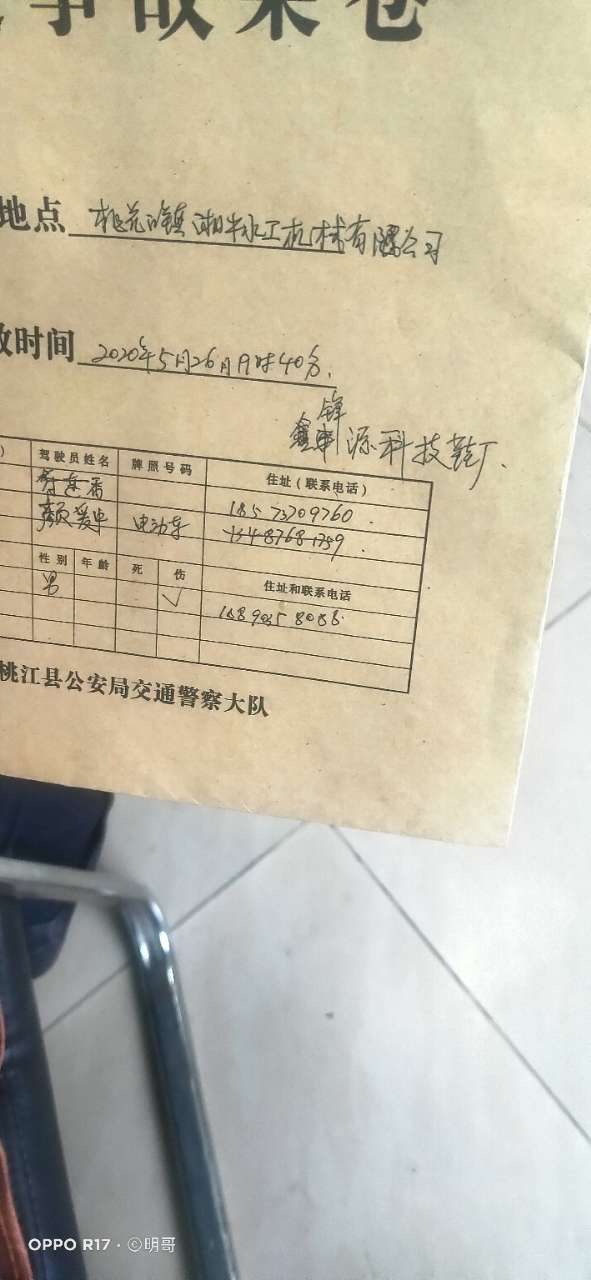 事故案卷
地点 桃花江镇湘牛水工机械有限公司
故时间 2020年5月26日19时40分.
锋
鑫 源科技鞋厂.
) 驾驶员姓名 牌照号码 住址(联系电话)
18573709760.
颜爱华 电动车 13487681759.
性别 年龄 死 伤 住址和联系电话
男 √
桃江县公安局交通警察大队
OPPO R17 · ©明哥